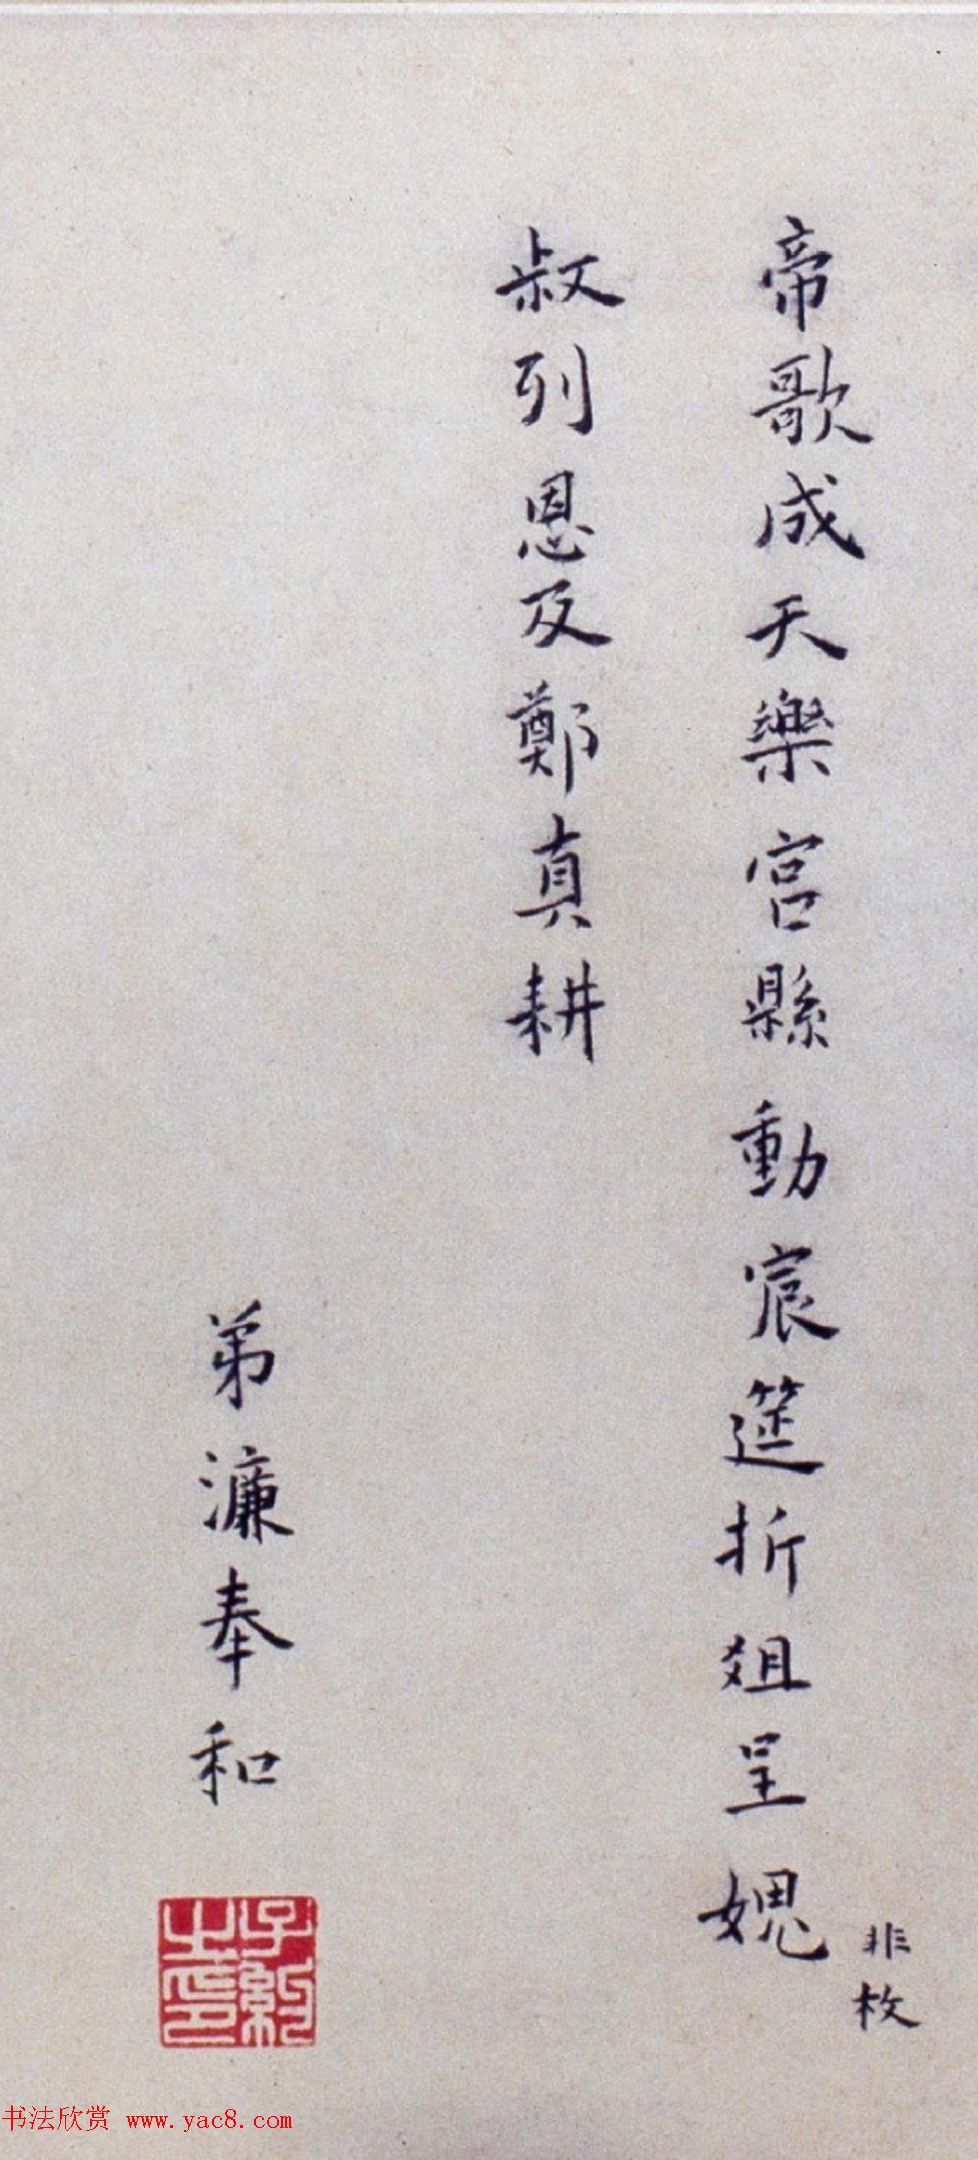 帝歌成天樂宮縣動宸筵折爼呈媿
非枚
叔列恩及鄭真耕
弟濂奉和
书法欣赏 www.yac8.com